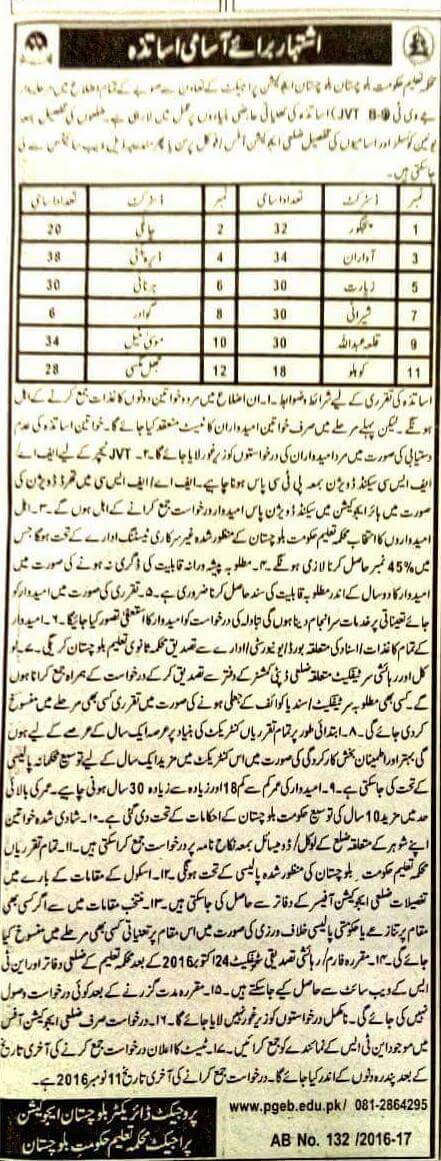 اشتہار برائے آسامی اساتذہ
محکمہ تعلیم حکومت بلوچستان بلوچستان ایجوکیشن پراجیکٹ کے تعاون سے صوبے کے تمام اضلاع میں مرحلہ وار
جے وی ٹی (JVT B-9) اساتذہ کی تعیناتی عارضی بنیادوں پر عمل میں لا رہی ہے۔ ضلعوں کی تفصیل بمعہ
یونین کونسلز اور اسامیوں کی تفصیل ضلعی ایجوکیشن آفس / فوکل پرسن یا پھر مندرجہ ذیل ویب سائٹس سے لی
جا سکتی ہیں۔
نمبر ڈسٹرکٹ تعداد اسامی نمبر ڈسٹرکٹ تعداد اسامی
1 پنجگور 32 2 چاغی 20
3 آواران 34 4 ڈیرہ بگٹی 38
5 زیارت 30 6 ہرنائی 30
7 شیرانی 30 8 گوادر 6
9 قلعہ عبداللہ 30 10 موسیٰ خیل 34
11 کوہلو 18 12 جھل مگسی 28
اساتذہ کی تقرری کے لیے شرائط و ضوابط۔ ۱۔ ان اضلاع میں مرد و خواتین دونوں کاغذات جمع کرنے کے اہل
ہونگے۔ لیکن پہلے مرحلے میں صرف خواتین امیدواران کا ٹیسٹ منعقد کیا جائے گا۔ خواتین اساتذہ کی عدم
دستیابی کی صورت میں مرد امیدواران کی درخواستوں کو زیر غور لایا جائے گا۔ ۲۔ JVT ٹیچر کے لیے ایف اے/
ایف ایس سی سیکنڈ ڈویژن بمعہ پی ٹی سی پاس ہونا چاہیے۔ ایف اے/ ایف ایس سی میں تھرڈ ڈویژن کی
صورت میں ہائر ایجوکیشن میں سیکنڈ ڈویژن پاس امیدوار درخواست جمع کرانے کے اہل ہوں گے۔ ۳۔ اہل
امیدواروں کا انتخاب محکمہ تعلیم حکومت بلوچستان کے منظور شدہ غیر سرکاری ٹیسٹنگ ادارے کے تحت ہوگا جس
میں 45% نمبر حاصل کرنا لازمی ہونگے۔ ۴۔ مطلوبہ پیشہ ورانہ قابلیت کی ڈگری نہ ہونے کی صورت میں
امیدوار کا دو سال کے اندر مطلوبہ قابلیت کی سند حاصل کرنا ضروری ہے۔ ۵۔ تقرری کی صورت میں امیدوار کو
جائے تعیناتی پر خدمات سرانجام دینا ہوں گی تبادلہ کی درخواست کو امیدوار کا استعفیٰ تصور کیا جائیگا۔ ۶۔ امیدوار
کے تمام کاغذات/ اسناد کی متعلقہ بورڈ/ یونیورسٹی/ ادارے سے تصدیق محکمہ ثانوی تعلیم بلوچستان کریگی۔ ۷۔ لو
کل اور رہائشی سرٹیفکیٹ متعلقہ ضلعی ڈپٹی کمشنر کے دفتر سے تصدیق کر کے درخواست کے ہمراہ جمع کرانا ہوں
گے۔ کسی بھی مطلوبہ سرٹیفکیٹ/ سند یا کوائف کے جعلی ہونے کی صورت میں تقرری کسی بھی مرحلے میں منسوخ
کر دی جائے گی۔ ۸۔ ابتدائی طور پر تمام تقرریاں کنٹریکٹ کی بنیاد پر عرصہ ایک سال کے عرصے کے لیے ہوں گی
بہتر اور اطمینان بخش کارکردگی کی صورت میں اس کنٹریکٹ میں مزید ایک سال کے لیے توسیع محکمانہ پالیسی
کے تحت کی جا سکتی ہے۔ ۹۔ امیدوار کی عمر کم سے کم 18 اور زیادہ سے زیادہ 30 سال ہونی چاہیے۔ عمر کی بالائی
حد میں مزید 10 سال کی توسیع حکومت بلوچستان کے احکامات کے تحت دی گئی ہے۔ ۱۰۔ شادی شدہ خواتین
اپنے شوہر کے متعلقہ ضلع کے لوکل/ ڈومیسائل بمعہ نکاح نامہ پر درخواست جمع کرا سکتی ہیں۔ ۱۱۔ تمام تقرریاں
محکمہ تعلیم حکومت بلوچستان کی منظور شدہ پالیسی کے تحت ہونگی۔ ۱۲۔ اسکول کے مقامات کے بارے میں
تفصیلات ضلعی ایجوکیشن آفیسر کے دفاتر سے حاصل کی جا سکتی ہیں۔ ۱۳۔ منتخب مقامات میں سے اگر کسی بھی
مقام پر تنازعے یا حکومتی پالیسی خلاف ورزی کی صورت میں اس مقام پر تعیناتی کسی بھی مرحلے میں منسوخ کیا
جائے گی۔ ۱۴۔ مقررہ فارم/ رہائشی تصدیقی سرٹیفکیٹ 24 اکتوبر 2016 کے بعد محکمہ تعلیم کے ضلعی دفاتر اور این ٹی
ایس کے ویب سائٹ سے حاصل کیے جا سکتے ہیں۔ ۱۵۔ مقررہ مدت گزرنے کے بعد کوئی درخواست وصول
نہیں کی جائے گی۔ نامکمل درخواستوں کو زیر غور نہیں لایا جائے گا۔ ۱۶۔ درخواست صرف ضلعی ایجوکیشن آفس
میں موجود این ٹی ایس کے نمائندے کو جمع کرائیں۔ ۱۷۔ ٹیسٹ کا اعلان درخواست جمع کرنے کی آخری تاریخ
کے بعد پندرہ دنوں کے اندر کیا جائے گا۔ درخواست جمع کرانے کی آخری تاریخ 11 نومبر 2016 ہے۔
www.pgeb.edu.pk/ 081-2864295
پروجیکٹ ڈائریکٹر بلوچستان ایجوکیشن
پراجیکٹ محکمہ تعلیم حکومت بلوچستان
AB No. 132 /2016-17